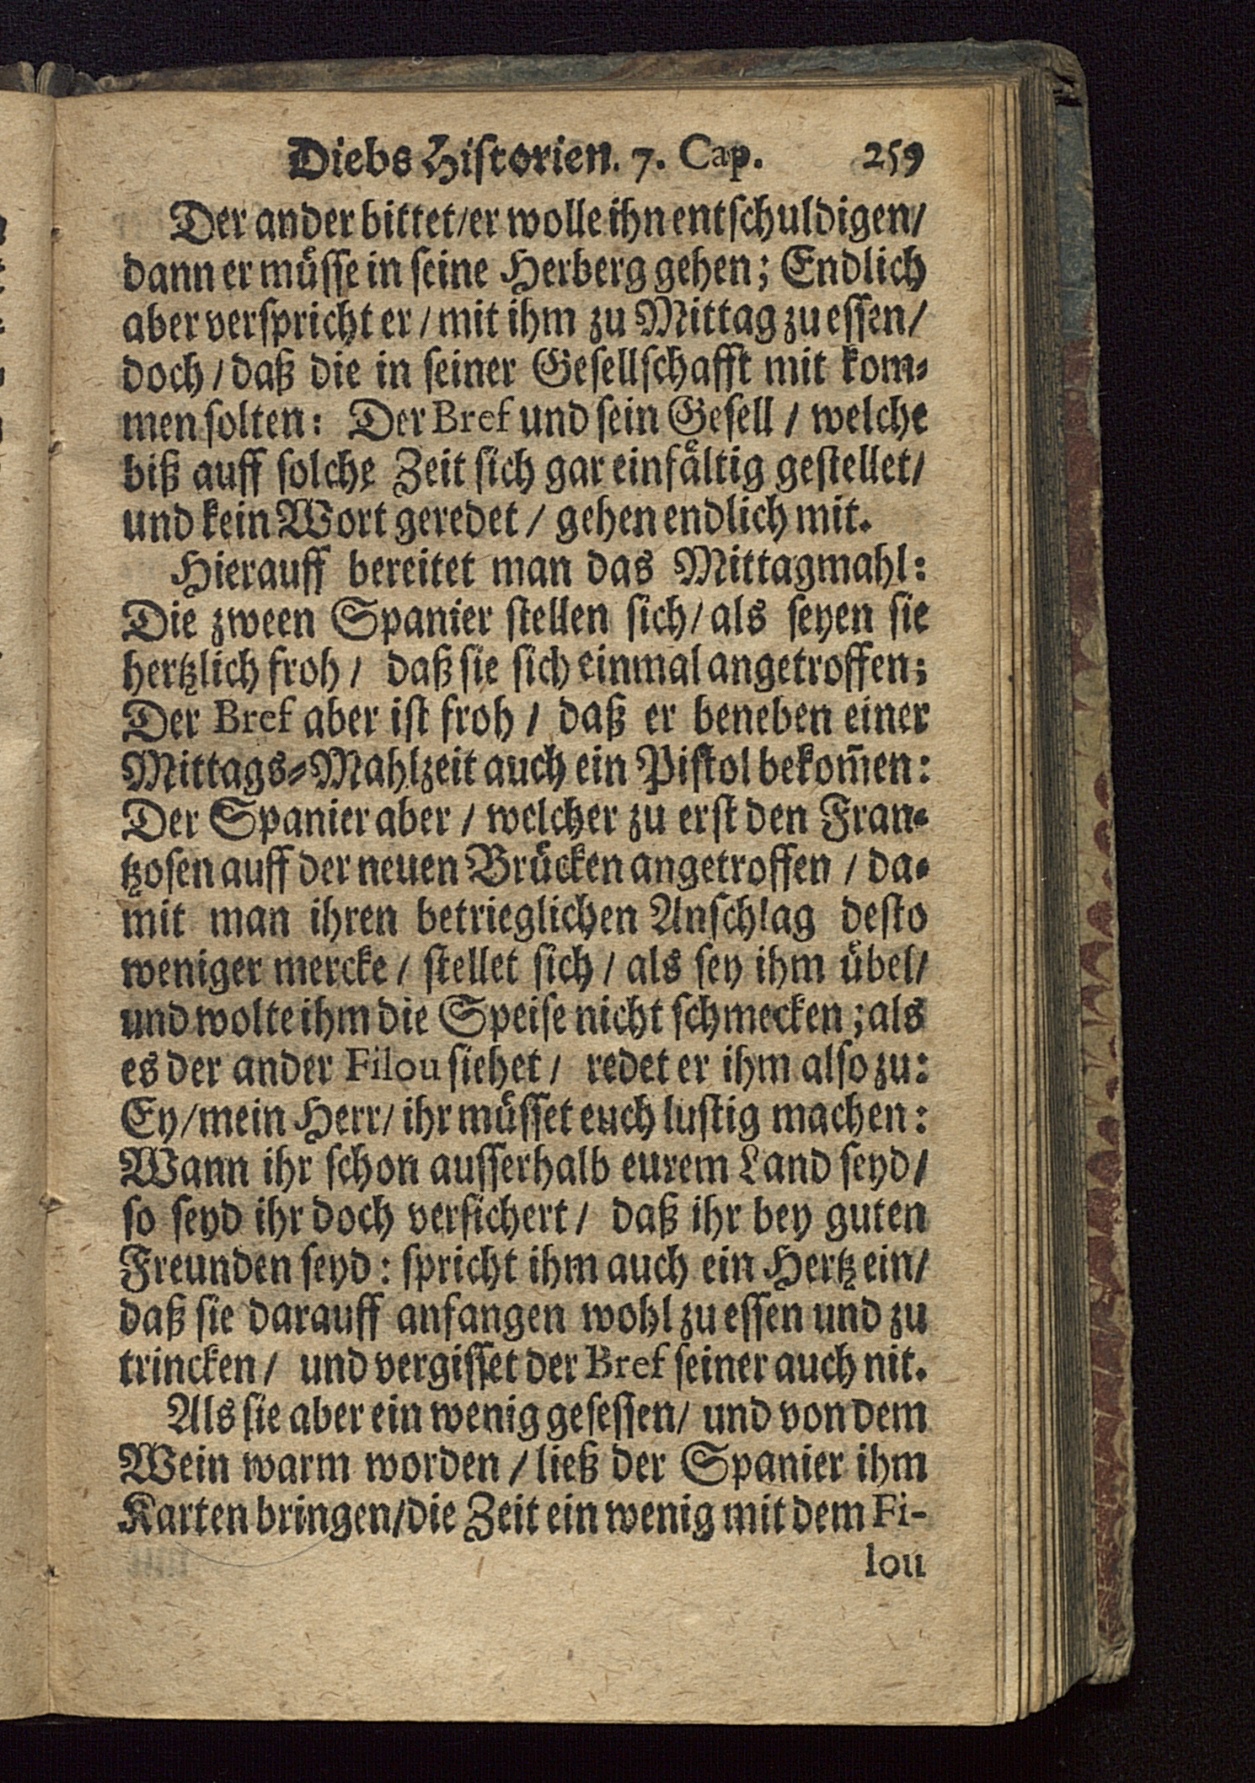 Diebs Historien. 7. Cap. 259
Der ander bittet/er wolle ihn entschuldigen/
dann er müsse in seine Herberg gehen; Endlich
aber verspricht er / mit ihm zu Mittag zu essen/
doch / daß die in seiner Gesellschafft mit kom-
men solten: Der Bref und sein Gesell / welche
biß auff solche Zeit sich gar einfältig gestellet/
und kein Wort geredet / gehen endlich mit.
Hierauff bereitet man das Mittagmahl:
Die zween Spanier stellen sich/ als seyen sie
hertzlich froh / daß sie sich einmal angetroffen;
Der Bref aber ist froh / daß er beneben einer
Mittags-Mahlzeit auch ein Pistol bekom̃en:
Der Spanier aber / welcher zu erst den Fran-
tzosen auff der neuen Brücken angetroffen / da-
mit man ihren betrieglichen Anschlag desto
weniger mercke / stellet sich / als sey ihm übel/
und wolte ihm die Speise nicht schmecken; als
es der ander Filou siehet / redet er ihm also zu:
Ey/mein Herr/ ihr müsset euch lustig machen:
Wann ihr schon ausserhalb eurem Land seyd/
so seyd ihr doch versichert / daß ihr bey guten
Freunden seyd: spricht ihm auch ein Hertz ein/
daß sie darauff anfangen wohl zu essen und zu
trincken / und vergisset der Bref seiner auch nit.
Als sie aber ein wenig gesessen/ und von dem
Wein warm worden / ließ der Spanier ihm
Karten bringen/die Zeit ein wenig mit dem Fi-
lou